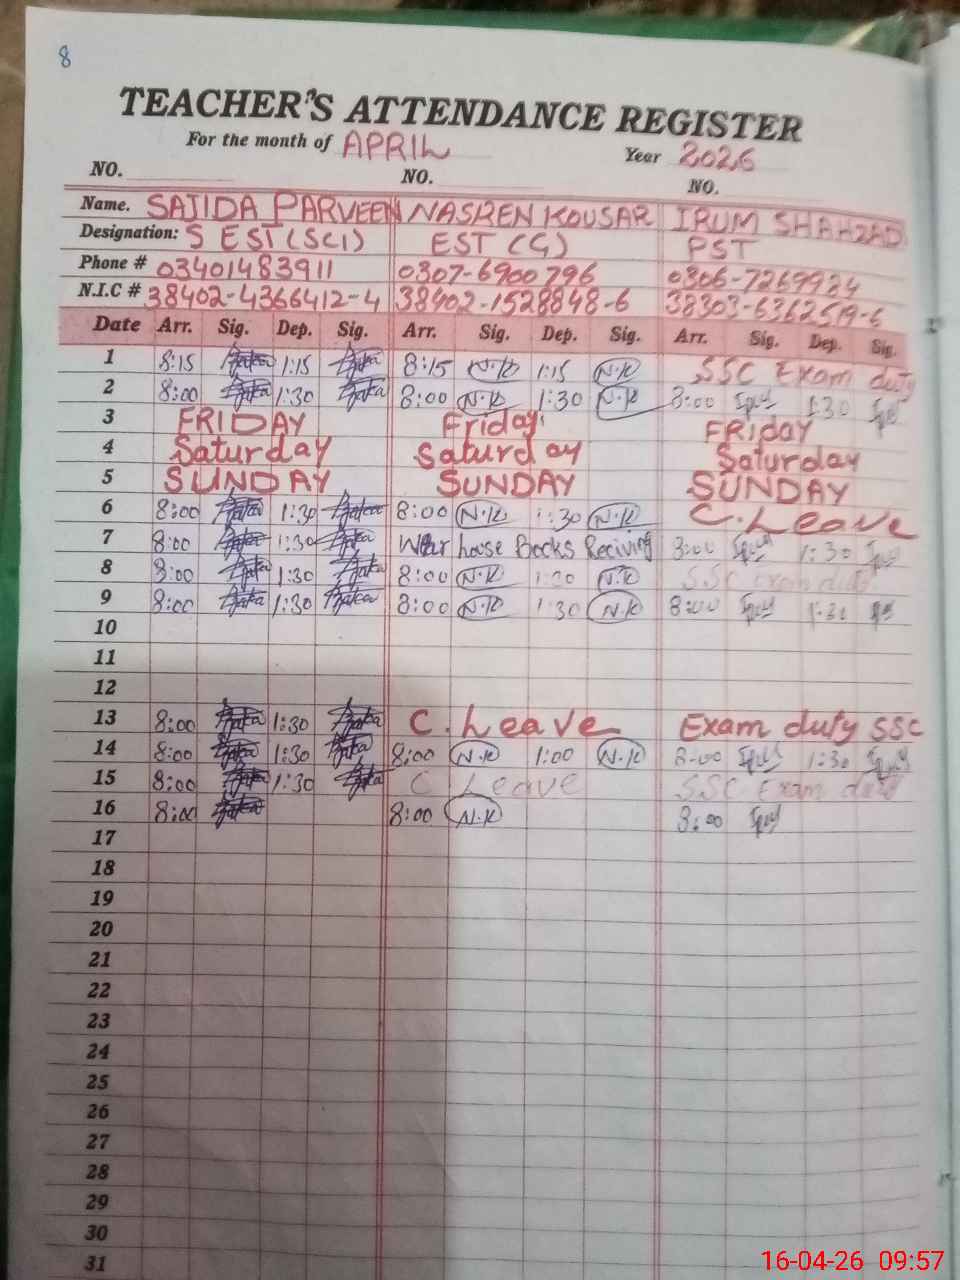 8
TEACHER'S ATTENDANCE REGISTER
For the month of APRIL Year 2026
NO. NO. NO.
Name. SAJIDA PARVEEN NASREN KOUSAR IRUM SHAHZAD
Designation: S EST (SCI) EST (G) PST
Phone # 03401483911 0307-6900796 0306-7269984
N.I.C # 38402-4366412-4 38402-1528848-6 38303-6362519-6
Date Arr. Sig. Dep. Sig. Arr. Sig. Dep. Sig. Arr. Sig. Dep. Sig.
1 8:15 1:15 8:15 N.K 1:15 N.K SSC Exam duty
2 8:00 1:30 8:00 N.K 1:30 N.K 8:00 1:30
3 FRIDAY Friday FRIday
4 Saturday Saturday Saturday
5 SUNDAY SUNDAY SUNDAY
6 8:00 1:30 8:00 N.K 1:30 N.K C. Leave
7 8:00 1:30 Wear house Books Reciving 8:00 1:30
8 8:00 1:30 8:00 N.K 1:30 N.K SSC Exam duty
9 8:00 1:30 8:00 N.K 1:30 N.K 8:00 1:30
10
11
12
13 8:00 1:30 C. Leave Exam duty SSC
14 8:00 1:30 8:00 N.K 1:00 N.K 8:00 1:30
15 8:00 1:30 C. Leave SSC Exam duty
16 8:00 8:00 N.K 8:00
17
18
19
20
21
22
23
24
25
26
27
28
29
30
31
16-04-26 09:57